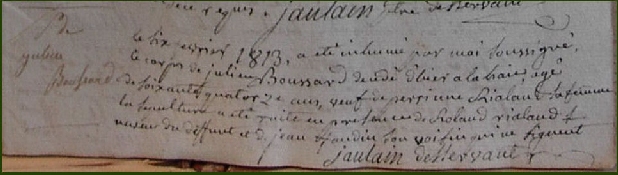 jaulain ptre deservant
Julien
Boussard
le six fevrier 1813, a eté inhumé par moi soussigné,
le corps de julien Boussard decedé d'hier a la haie agé
de soixante quatorze ans, veuf de perrinne Rialand sa femme
la sepulture a eté faite en presence de Roland rialand
neveu du deffunt et de jean handin son voisin qui ne signent
jaulain deservant